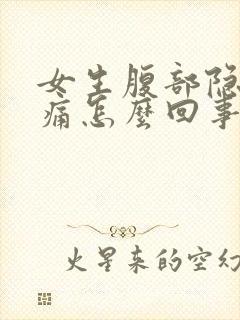 女生腹部隐
痛怎麽回事
火星来的空幻